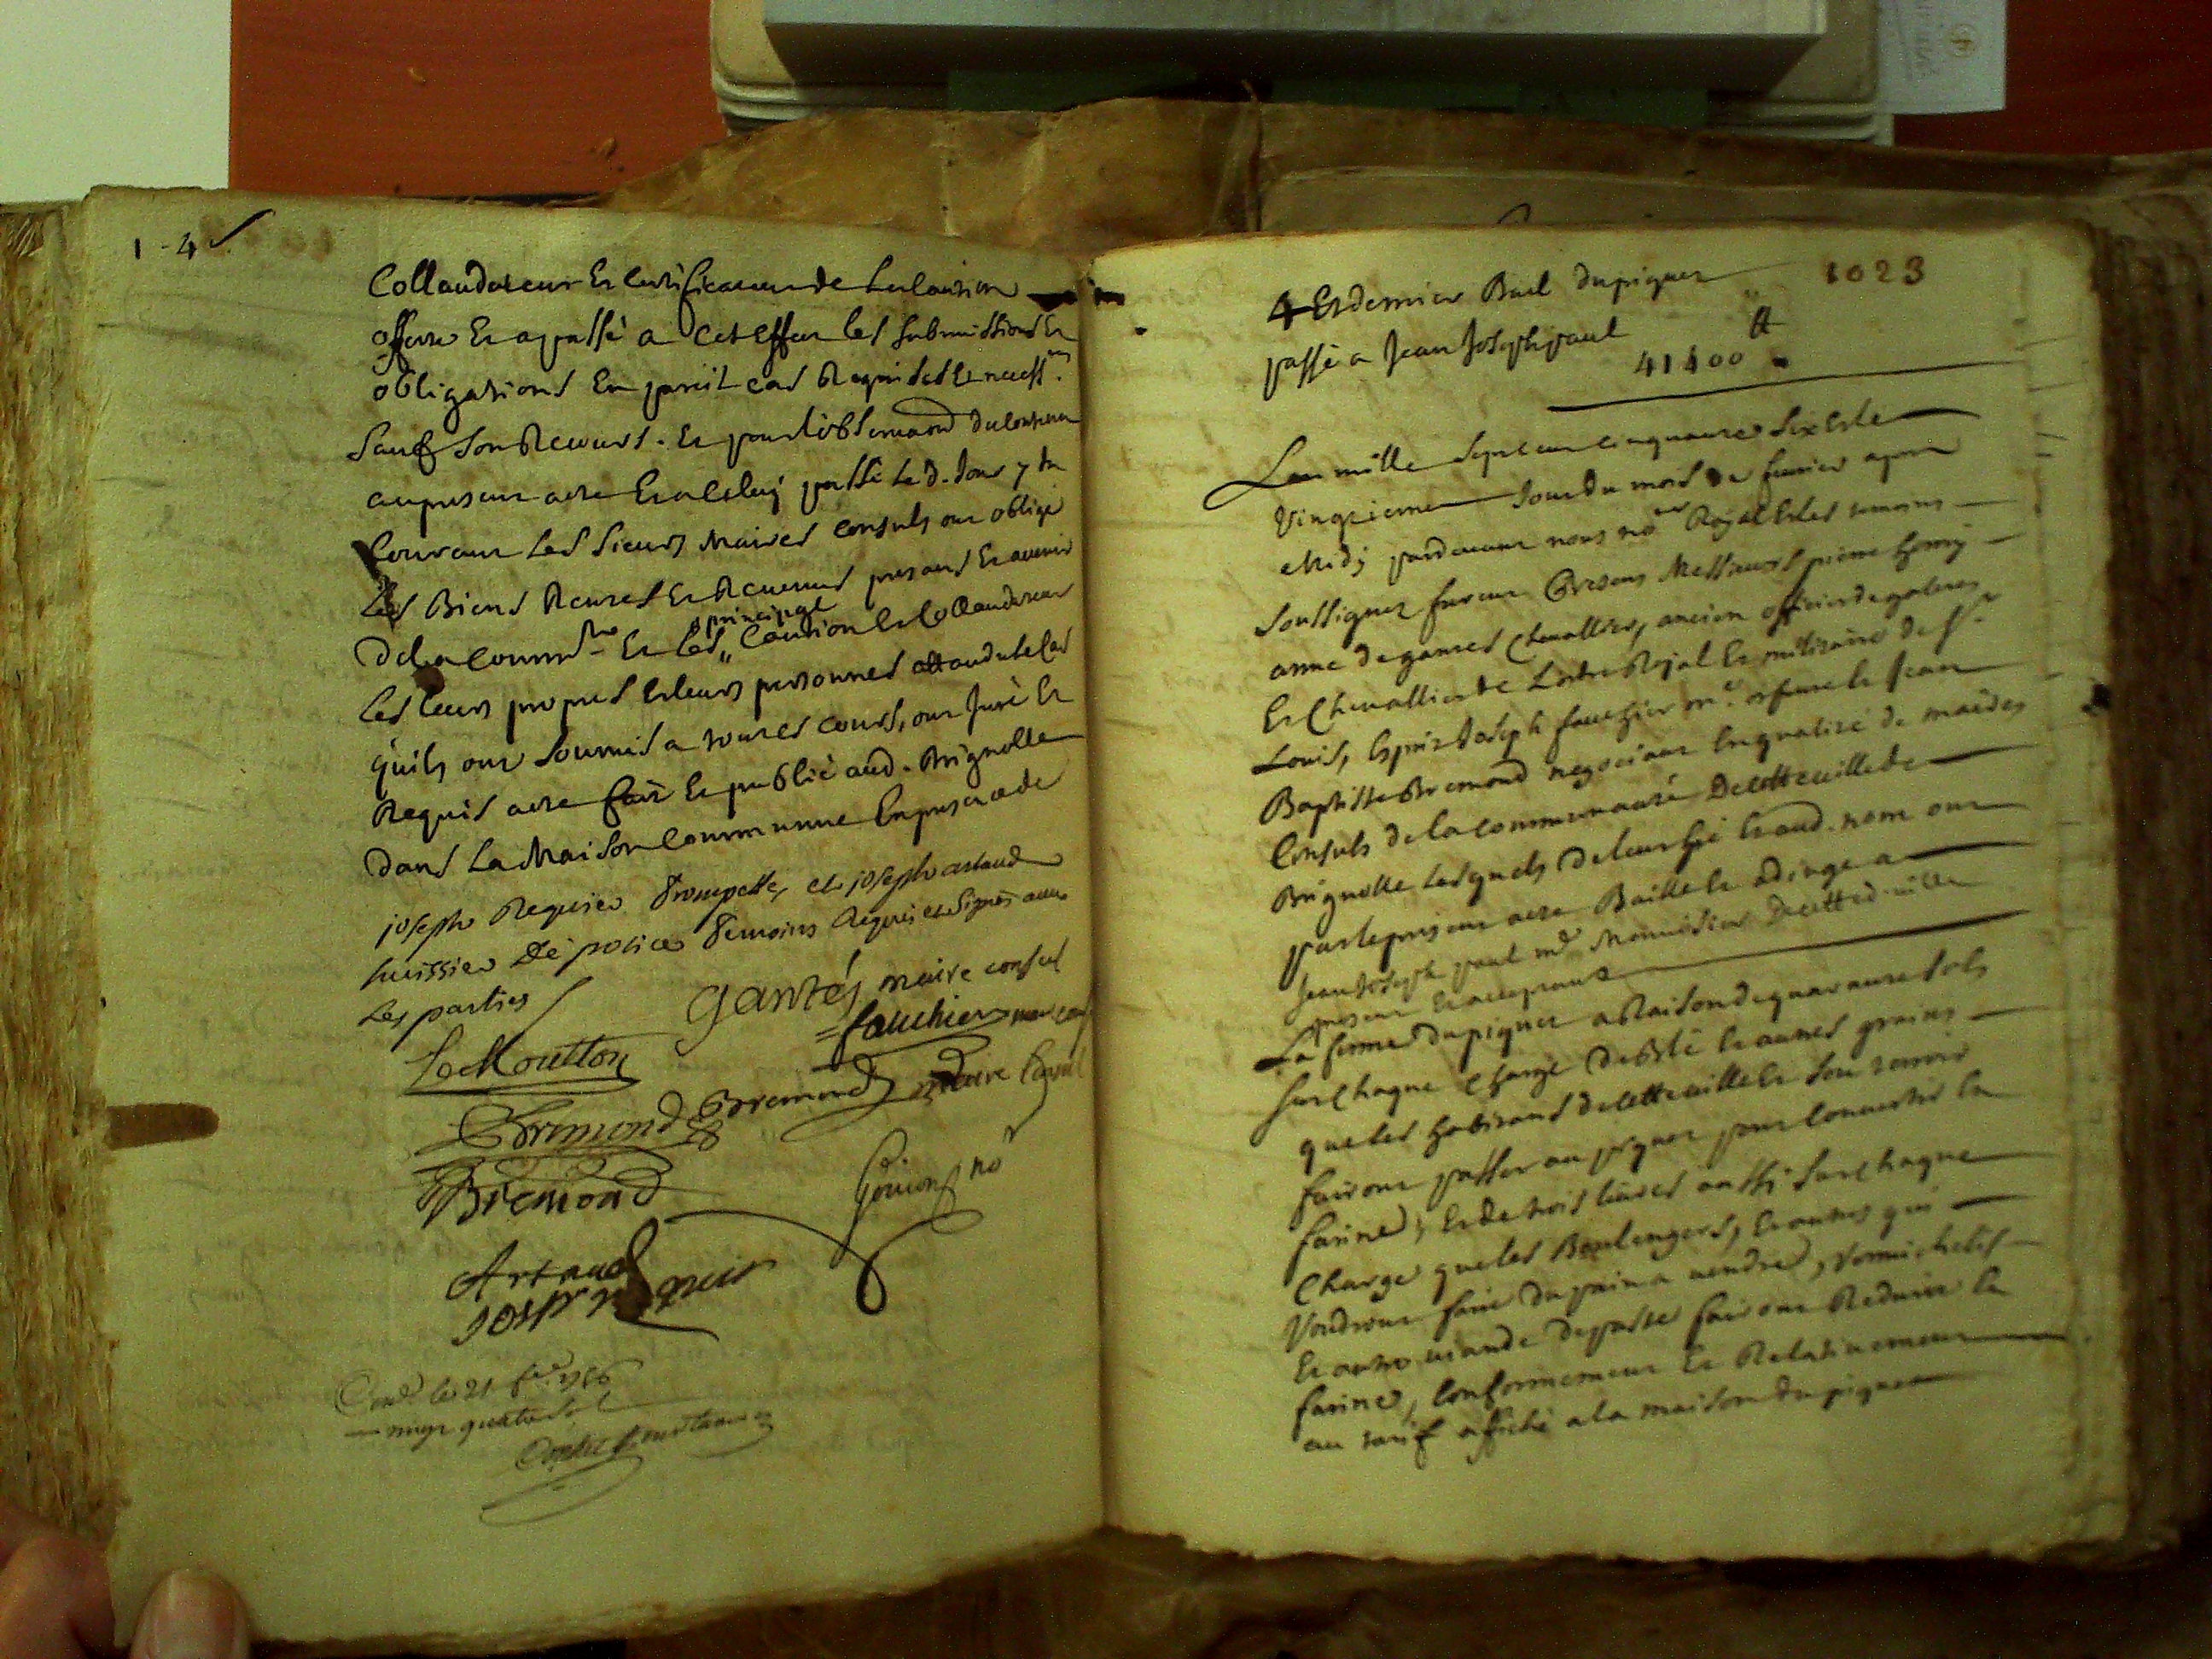 1 - 4
Collaudateur Et Certificateur de La Caution
offerte Et a passé a Cet Effet les submissions Et
obligations En pareil cas Requises Et necess.res
Sauf Son Recours. Et pour l'observaõn du Contenu
au present acte Et a Celuy passé Le d. Jour 7 du
Courant Les Sieurs Maires Consuls ont obligé
Les Biens Rentes Et Revenus presens Et avenir
De La Commté Et Les Caution Et Collaudateur
principal
Les leurs propres Et leurs personnes
qu'ils ont soumis a toutes cours, ont Juré Et
Requis acte fait Et publié aud. Brignolle
Dans La Maison Commune En presence de
joseph Requier Trompette, et joseph artaud
huissier De police Temoins Requis et Signés avec
Les parties
Gantés maire consul
Le Moutton
fauchier
Bremond
Bremond maire Consul
Bremond
Goujon no.re
Artaud
Josph requier
Con.lé le 21 1756
quatre sols
1023
4 Et dernier Bail du piquet
passé a Jean Joseph paul
41400 tt
L'an mille Sept Cent Cinquante Six Et le
Vingtieme Jour du mois de fevrier apres
Midy pardevant nous no.re Royal Et les temoins
Soussignez furent presens Messieurs pierre henry
anne de gantes Chevallier, ancien officier de galeres
Et Chevallier de L'ordre Royal Et militaire de St
Louis, Esprit Joseph fauchier m.e orfevre Et Jean
Baptiste Bremond negociant En qualité de maires
Consuls de la Communauté De cette ville de
Brignolle Lesquels de leur gré Et aud. nom ont
par le present acte Baillé Et a
Jean Joseph paul m.d Menuisier De cette d. ville
present Et acceptant
La ferme du piquet a Raison de quarante sols
Sur Chaque Charge de Blé Et autres grains
que les habitans de cette ville Et son terroir
fairont passer au piquet pour Convertir En
farine; Et de trois livres aussi Sur Chaque
Charge que les Boulangers, Et autres qui
Voudront faire du pain a vendre, Vermichelis
Et autre viande de paste fairont Reduire En
farine, Conformement Et Relativement
au tarif affiché a la maison du piquet